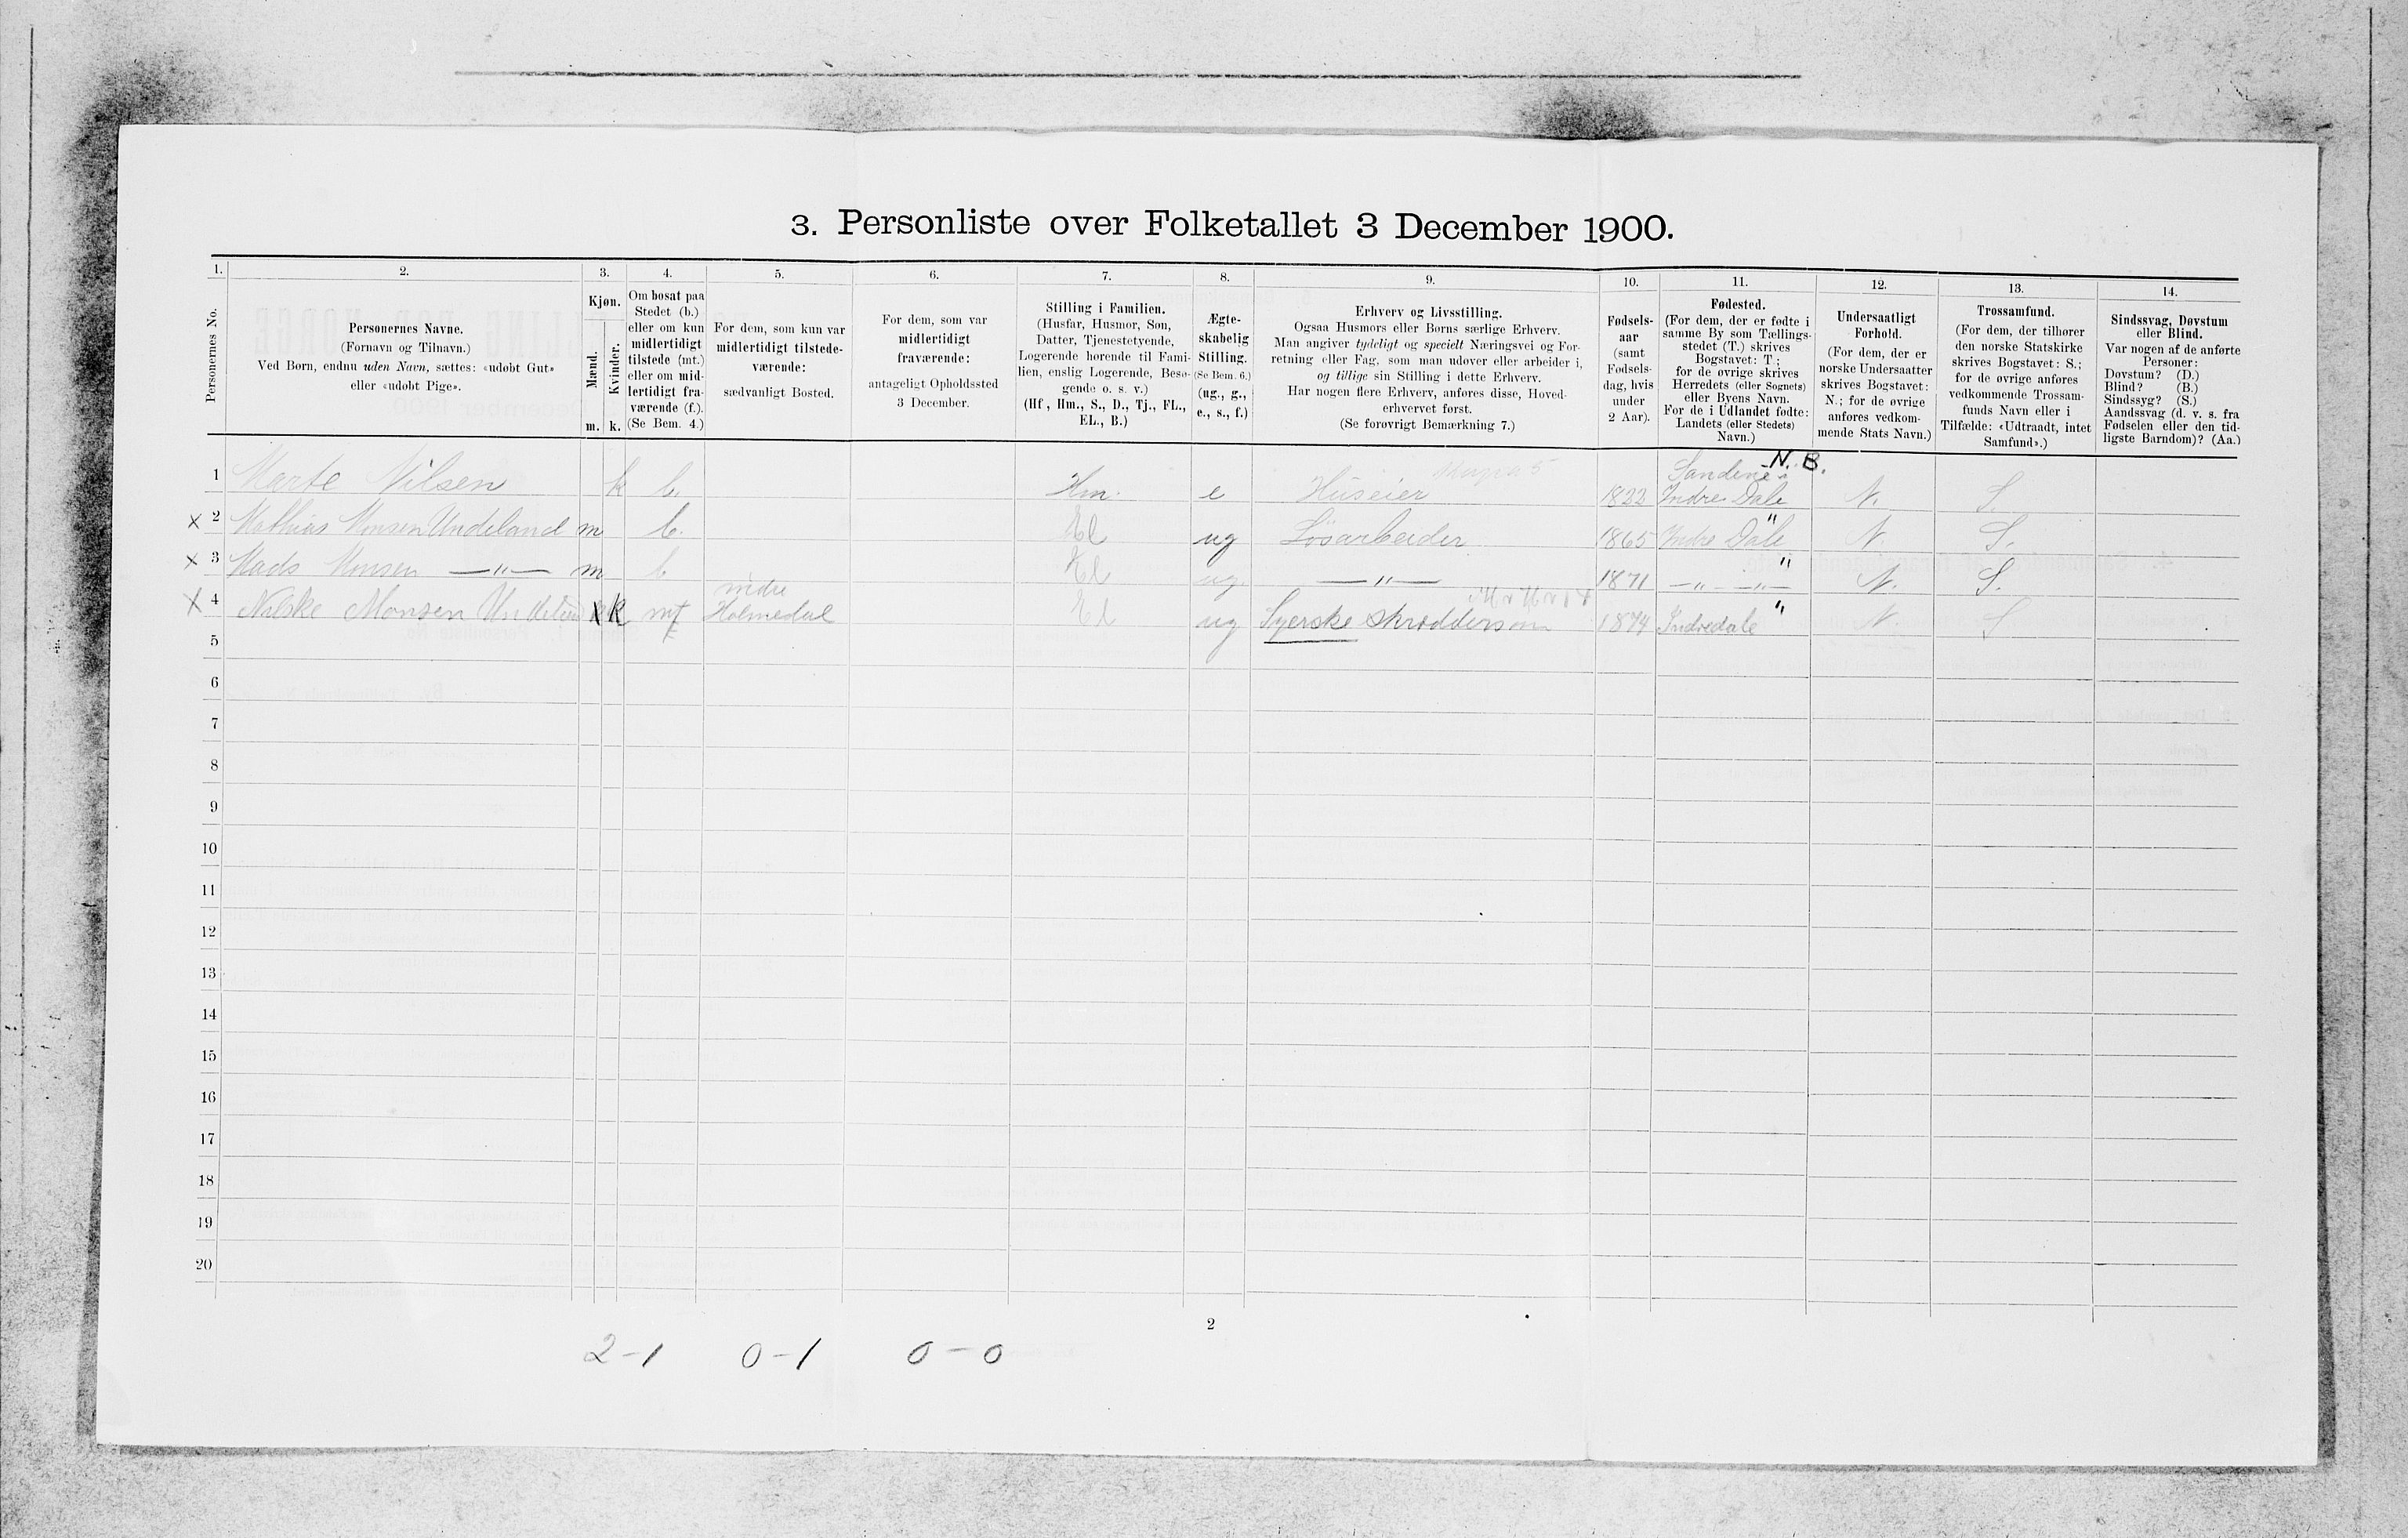 3. Personliste over Folketallet 3 December 1900.
1. 2. 3. 4. 5. 6. 7. 8. 9. 10. 11. 12. 13. 14.
Personernes No.
Personernes Navne.
(Fornavn og Tilnavn.)
Ved Børn, endnu uden Navn, sættes: «udøbt Gut»
eller «udøbt Pige».
Kjøn.
Mænd.
Kvinder.
m. k.
Om bosat paa
Stedet (b.)
eller om kun
midlertidigt
tilstede (mt.)
eller om mid-
lertidigt fra-
værende (f.).
(Se Bem. 4.)
For dem, som kun var
midlertidigt tilstede-
værende:
sædvanligt Bosted.
For dem, som var
midlertidigt
fraværende:
antageligt Opholdssted
3 December.
Stilling i Familien.
(Husfar, Husmor, Søn,
Datter, Tjenestetyende,
Logerende hørende til Fami-
lien, enslig Logerende, Besø-
gende o. s. v.)
(Hf, Hm., S., D., Tj., FL.,
EL., B.)
Ægte-
skabelig
Stilling.
(Se Bem. 6.)
(ug., g.,
e., s., f.)
Erhverv og Livsstilling.
Ogsaa Husmors eller Børns særlige Erhverv.
Man angiver tydeligt og specielt Næringsvei og For-
retning eller Fag, som man udøver eller arbeider i,
og tillige sin Stilling i dette Erhverv.
Har nogen flere Erhverv, anføres disse, Hoved-
erhvervet først.
(Se forøvrigt Bemærkning 7.)
Fødsels-
aar
(samt
Fødsels-
dag, hvis
under
2 Aar).
Fødested.
(For dem, der er fødte i
samme By som Tællings-
stedet (T.) skrives
Bogstavet: T.;
for de øvrige skrives
Herredets (eller Sognets)
eller Byens Navn.
For de i Udlandet fødte:
Landets (eller Stedets)
Navn.)
Undersaatligt
Forhold.
(For dem, der er
norske Undersaatter
skrives Bogstavet:
N.; for de øvrige
anføres vedkom-
mende Stats Navn.)
Trossamfund.
(For dem, der tilhører
den norske Statskirke
skrives Bogstavet: S.;
for de øvrige anføres
vedkommende Trossam-
funds Navn eller i
Tilfælde: «Udtraadt, intet
Samfund».)
Sindssvag, Døvstum
eller Blind.
Var nogen af de anførte
Personer:
Døvstum? (D.)
Blind? (B.)
Sindssyg? (S.)
Aandssvag (d. v. s. fra
Fødselen eller den tid-
ligste Barndom)? (Aa.)
N. B.
Sandene i
1 Marte Nilsen k b. Hm. e Huseier 1822 Indre Dale N. S.
x 2 Mathias Monsen Undeland m b. El ug Løsarbeider 1865 Indre Dale " N S.
x 3 Mads Monsen —"— m b El ug. —"— 1871 —"—"— " N. S.
indre
x 4 Monsen Undeland k mt Holmedal El ug Syerske 1874 Indredale " N. S
5
6
7
8
9
10
11
12
13
14
15
16
17
18
19
20
2
2-1 0-1 0-0